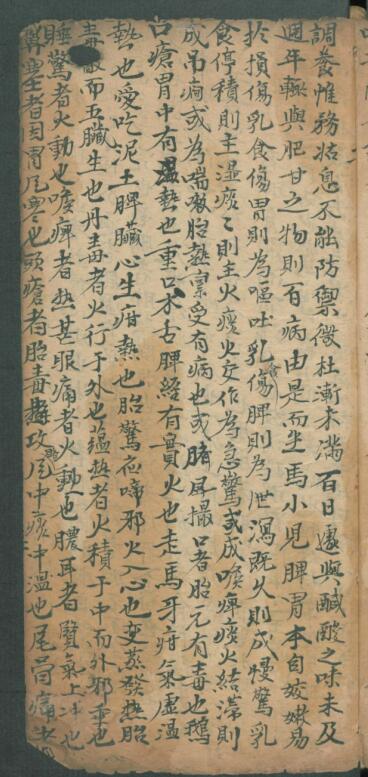 調養惟務姑息不能防禦微杜漸未滿百日遽與鹹酸之味未及
週年輒與肥甘之物則百病由是而生焉小兒脾胃本自姣嫩易
於損傷乳食傷胃則為嘔吐乳食傷脾則為泄瀉既久則成慢驚乳
食停積則主湿痰〻則主火痰火交作為急驚或成喉痺痰火結滞則
成吊癎或為喘嗽胎熱稟受有病也或臍屎撮口者胎元有毒也鵝
口瘡胃中有濕熱也重口木舌脾經有實火也走馬牙疳氣虛溫
熱也愛吃泥土脾臟心生疳熱也胎驚夜啼邪火入心也变蒸發热胎
毒散而五臟生也丹毒者火行于外也蘊热者火積于中而外邪乘也
睡驚者火動也喉痺者热甚眼痛者火動也膿耳者腎氣上冲也
鼻塞者因胃風寒也頭瘡者胎毒攻也中痰中溫也尾骨痛者